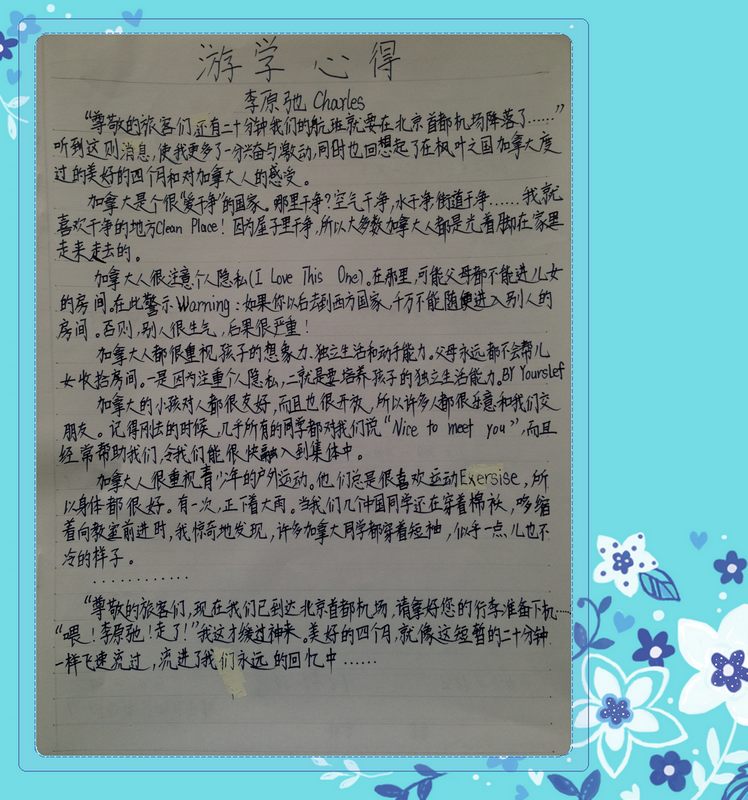 游学心得
李原弛 Charles
“尊敬的旅客们,还有二十分钟我们的航班就要在北京首都机场降落了……”
听到这则消息,使我更多了一分兴奋与激动,同时也回想起了在枫叶之国加拿大度
过的美好的四个月和对加拿大人的感受。
加拿大是个很“爱干净”的国家。哪里干净?空气干净,水干净街道干净……我就
喜欢干净的地方Clean Place!因为屋子里干净,所以大多数加拿大人都是光着脚在家里
走来走去的。
加拿大人很注意个人隐私(I Love This One)。在那里,可能父母都不能进儿女
的房间。在此警示Warning:如果你以后去到西方国家,千万不能随便进入别人的
房间。否则,别人很生气,后果很严重!
加拿大人都很重视孩子的想象力、独立生活和动手能力。父母永远都不会帮儿
女收拾房间。一是因为注重个人隐私,二就是要培养孩子的独立生活能力。BY Yourslef
加拿大的小孩对人都很友好,而且也很开放,所以许多人都很乐意和我们交
朋友。记得刚去的时候,几乎所有的同学都对我们说“Nice to meet you”,而且
经常帮助我们,令我们能很快融入到集体中。
加拿大人很重视青少年的户外运动。他们总是很喜欢运动Exersise,所
以身体都很好。有一次,正下着大雨。当我们几个中国同学还在穿着棉袄,哆缩
着向教室前进时,我惊奇地发现,许多加拿大同学都穿着短袖,似乎一点儿也不
冷的样子。
…………
“尊敬的旅客们,现在我们已到达北京首都机场,请拿好您的行李准备下机……
“喂!李原弛!走了!”我这才缓过神来。美好的四个月,就像这短暂的二十分钟
一样飞速流过,流进了我们永远的回忆中……